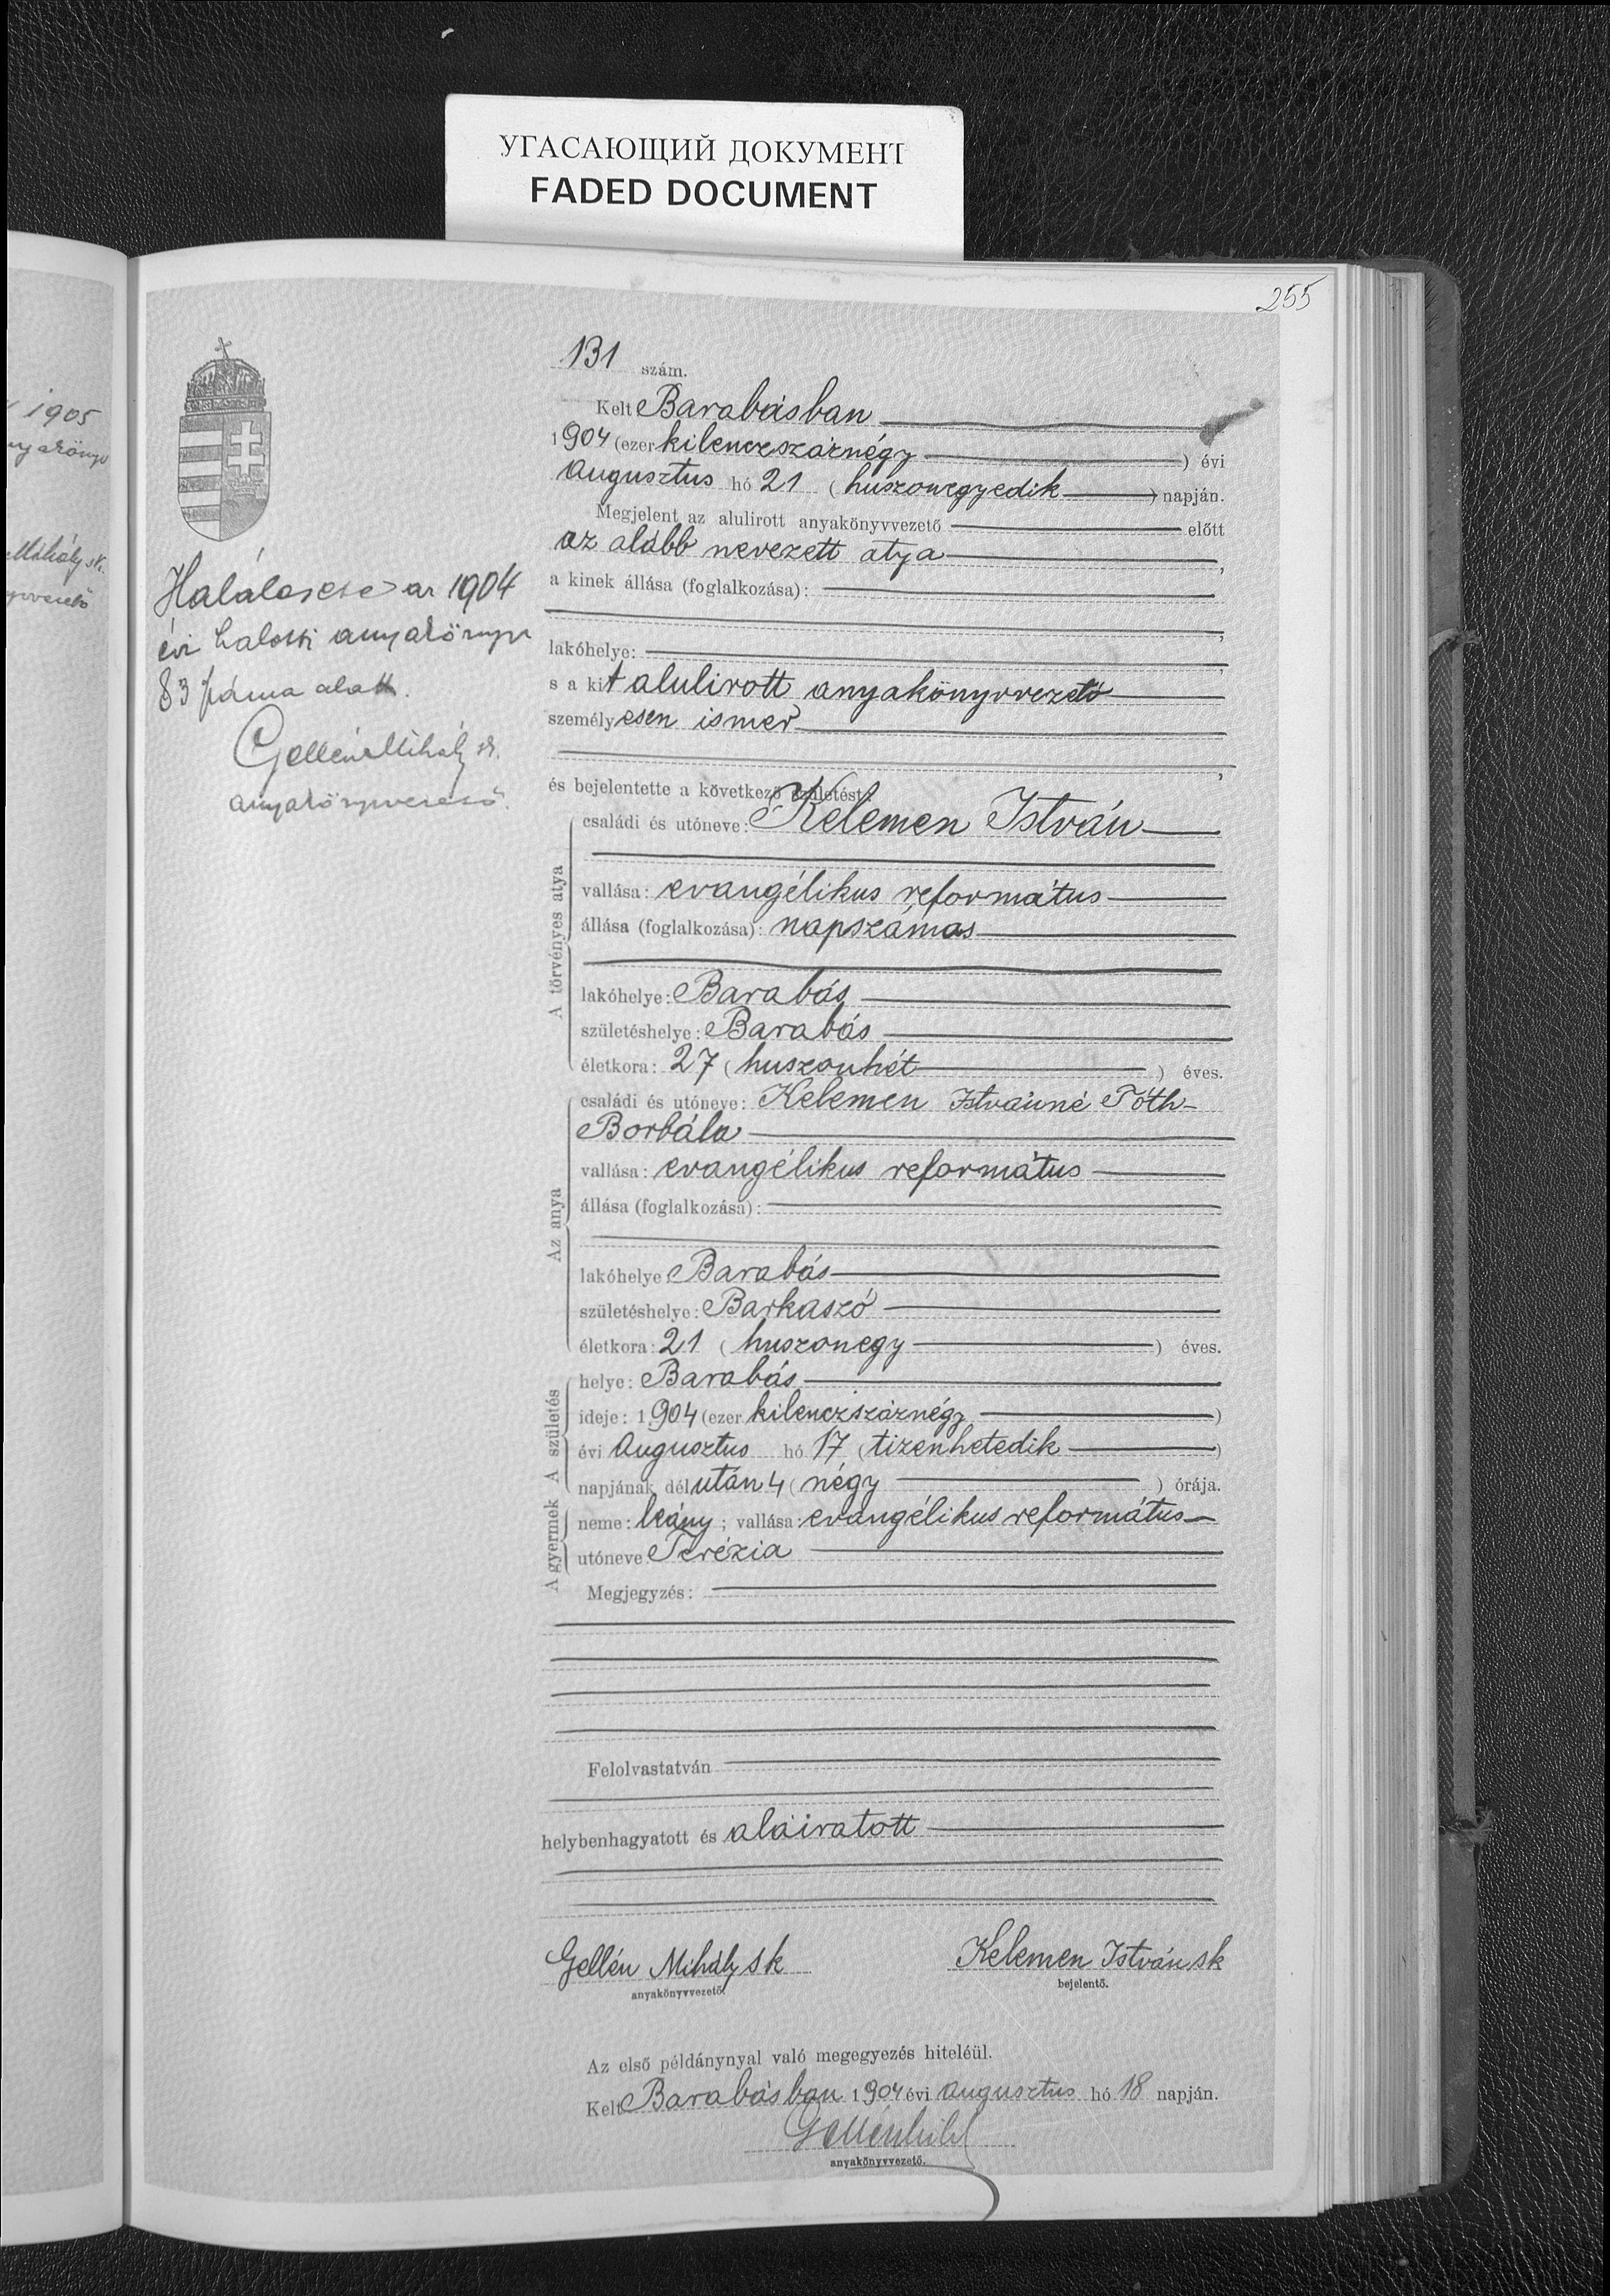 УГАСАЮЩИЙ ДОКУМЕНТ
FADED DOCUMENT
255
1905
Mihály sk.
Halálesete az 1904
évi halotti anyakönyv
83 száma alatt.
Gellén Mihály sk.
anyakönyvvezető.
131 szám.
Kelt Barabásban
1904 (ezer kilenczszáznégy ) évi
augusztus hó 21 ( huszonegyedik ) napján.
Megjelent az alulirott anyakönyvvezető előtt
az alább nevezett atya ,
a kinek állása (foglalkozása):
,
lakóhelye: ,
s a kit alulirott anyakönyvvezető
személyesen ismer
,
és bejelentette a következő születést:
A törvényes atya
családi és utóneve: Kelemen István
vallása: evangélikus református
állása (foglalkozása): napszámos
lakóhelye: Barabás
születéshelye: Barabás
életkora: 27 ( huszonhét ) éves.
Az anya
családi és utóneve: Kelemen Istvánné Tóth
Borbála
vallása: evangélikus református
állása (foglalkozása):
lakóhelye Barabás
születéshelye: Barkaszó
életkora: 21 ( huszonegy ) éves.
A születés
helye: Barabás
ideje: 1904 (ezer kilenczszáznégy )
évi augusztus hó 17 ( tizenhetedik )
napjának délután 4 ( négy ) órája.
A gyermek
neme: leány ; vallása: evangélikus református
utóneve: Terézia
Megjegyzés:
Felolvastatván
helybenhagyatott és aláiratott
Gellén Mihály sk Kelemen István sk
anyakönyvvezető. bejelentő.
Az első példánynyal való megegyezés hiteléül.
Kelt Barabásban 1904 évi augusztus hó 18 napján.
Gellén Mihál
anyakönyvvezető.